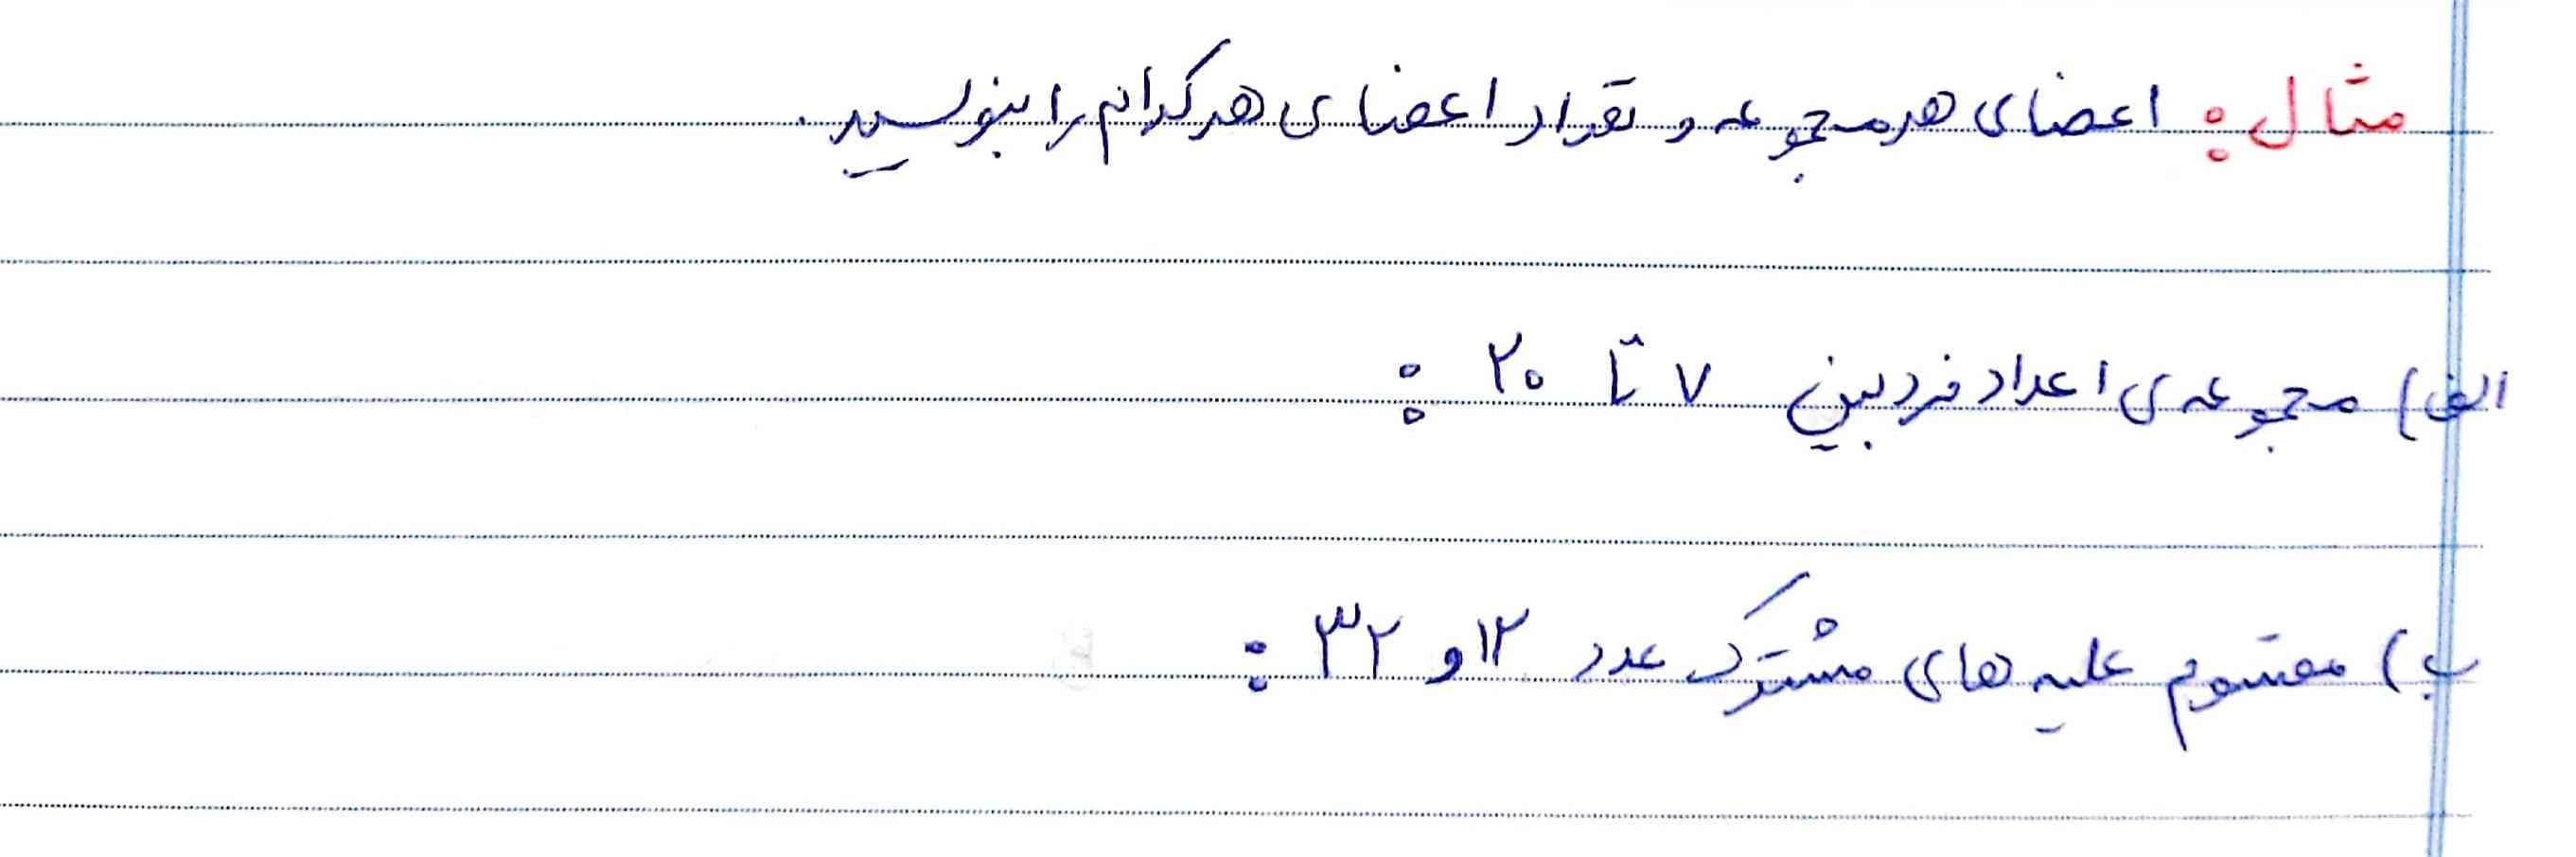 مثال : اعضای هر مجموعه و تعداد اعضای هر کدام را بنویسید.
الف) مجموعه ی اعداد فرد بین ۷ تا ۲۰ :
ب) مقسوم علیه های مشترک عدد ۱۲ و ۳۲ :